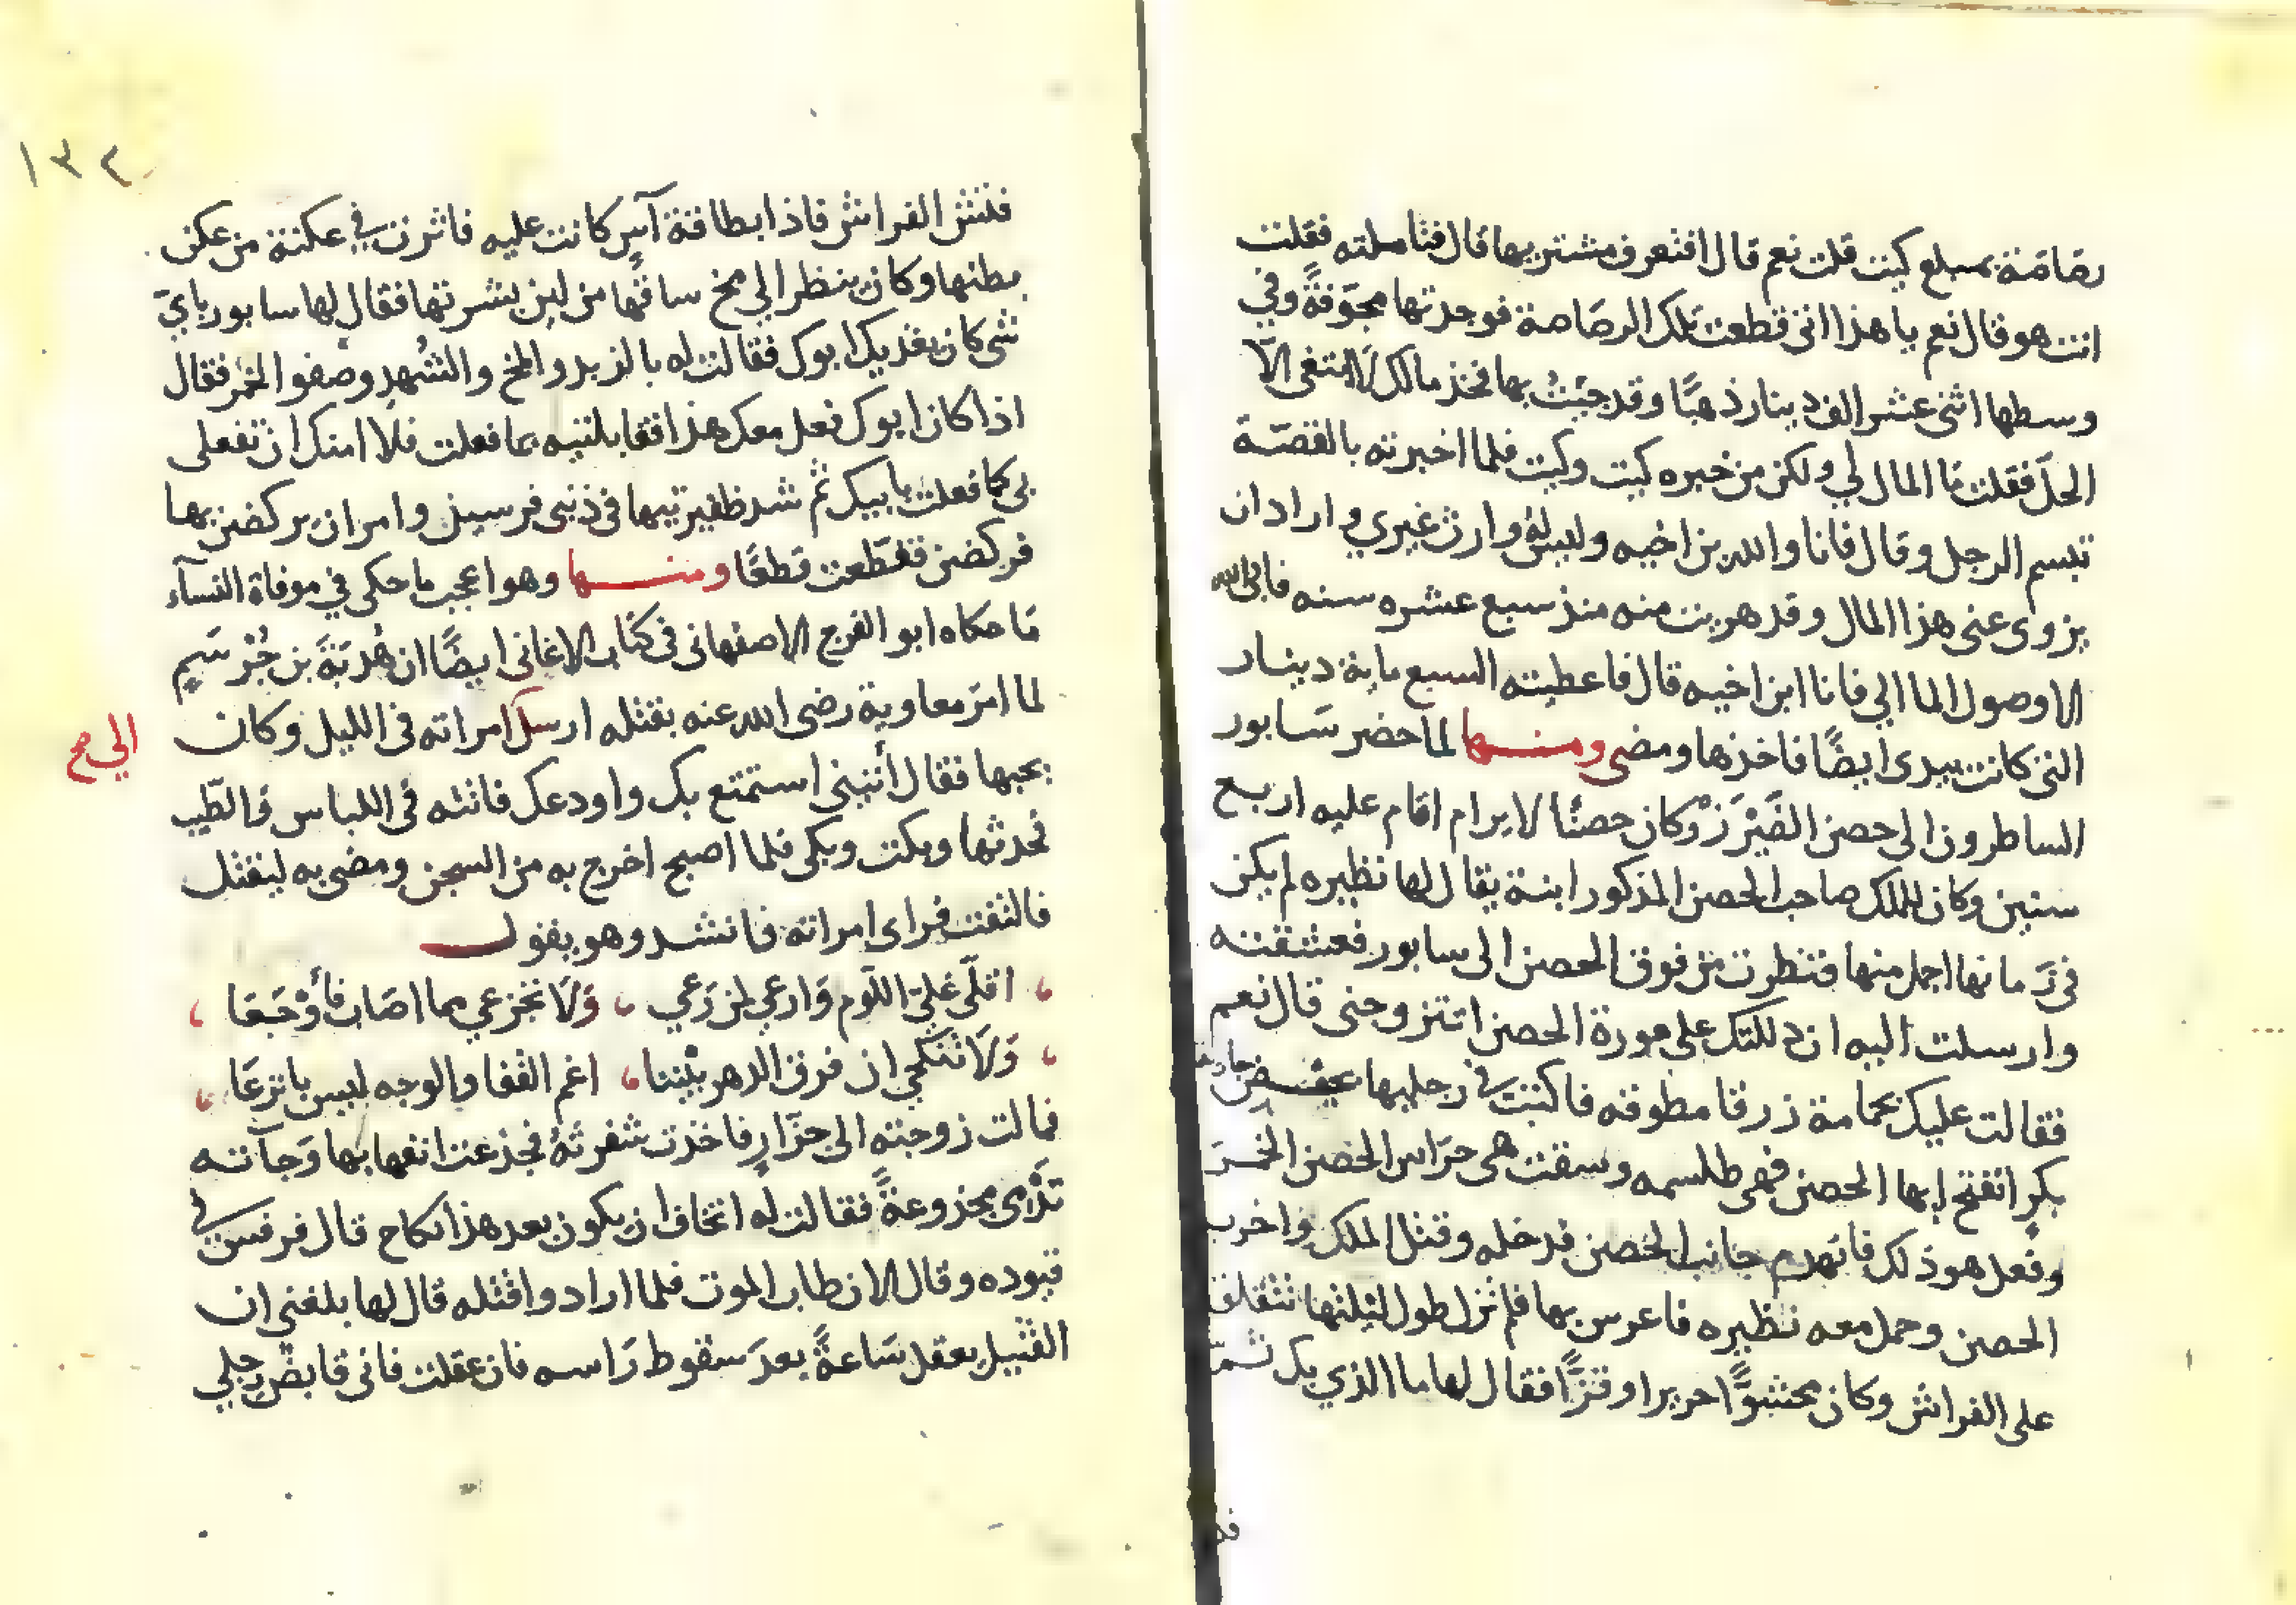 رصاصة بمبلغ كيت قلت نعم قال افتعرف مشتريها قال فتاملته فقلت
انت هو قال نعم يا هذا انى قطعت تلك الرصاصة فوجدتها مجوّفةً وفي
وسطها اثنى عشر الف دينار ذهبًا وقد جيتُ بها فخذ مالك لا ابتغى الّا
الحلّ فقلت مَا المال لي ولكن من خبره كيت وكيت فلما اخبرته بالقصّة
تبسم الرجل وقال فانا والله بن اخيه وليس لهُ وارث غيري و اراد ان
يزوى عنى هذا المال وقد هربت منه منذ سبع عشره سنه فابى الله
الا وصول الما الي فانا ابن اخيه قال فاعطيته السبع ماية دينار
التى كانت بيدى ايضًا فاخذها ومضى ومنها لما حضر سَابور
الساطرون الى حصن الضَيْزَنْ وكان حصنًا لا يرام اقام عليه اربع
سنين وكان للملك صاحب الحصن المذكور ابنة يقال لها نظيره لم يكن
فى زَمانها اجمل منها فنظرت من فوق الحصن الى سابور فعشقته
وارسلت اليه ان دللتك على عورة الحصن اتتزوجنى قال نعم
فقالت عليك بحمامة زرقا مطوقه فاكتب في رجليها بحيض
بكرٍ انفتح ايها الحصن فهى طلسمه وسقت هى حرّاس الحصن الخمرَ
وفعل هو ذلك فانهدم جانب الحصن فدخله وقتل الملك واخرب
الحصن وحمل معه نظيره فاعرس بها فلم تزل طول ليلتها تتقلقل
على الفراش وكان محشوًّا حريرا وقزًّا فقال لها ما الذي بك ثم
١٣٤
فتش الفراش فاذا بطاقة آسٍ كانت عليه فاثرت في عكنة من عكن
بطنها وكان ينظر الي مخ ساقها من لين بشرتها فقال لها سابور بايّ
شى كان يغذيك ابوك فقالت له بالزبد والمخ والشُهدِ وصفو الخمر فقال
اذا كان ابوك فعل معك هذا فقابلتيه بما فعلت فلا امنك ان تفعلى
بى كما فعلت بابيك ثم شد ظفيرتيها فى ذنبى فرسين وامران يركضن بها
فركضن فتقطعت قطعًا ومنها وهو اعجب ما حكى في موفاة النسآء
مَا حكاه ابو الفرج الاصفهانى فى كتاب الاغانى ايضًا ان هُدبَةَ بن خُرْشَمٍ
لما امرَ معاوية رضى الله عنه بقتله ارسل امراته فى الليل وكان
الي صح
يحبها فقال أتينى استمتع بك واودعك فاتته فى اللباس والطّيب
تحدثها وبكت وبكى فلما اصبح اخرج به من السجن ومضى به ليقتل
فالتفت فراى امراته فانشد وهو يقول
، اقلّى عَلىّ اللّوم وَارعي لمن رَعي ، وَلَا تجزعي مما اصَاب فأوْجَعَا ،
، وَلَا تنكحي ان فرق الدهر بيْننا ، اغم القفا والوجه ليس بانزعَا ،
فمالت زوجته الى جزّارٍ فاخذت شفرتهُ فجذعت انفها بها وَجآته
تَدْمَى مجذوعةً فقالت له اتخاف ان يكون بعد هذا نكاح قال فرفس في
قيوده وقال الان طاب الموت فلما ارادوا قتله قال لها بلغنى ان
القتيل يعقل سَاعةً بعدَ سقوط رَاسه فان عقلت فانى قابضٌ رجلي